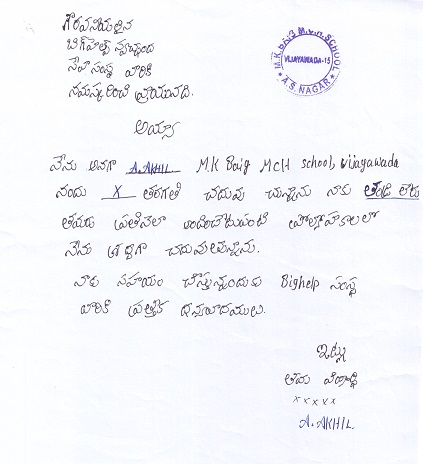 గౌరవనీయులైన
బిగ్‌హెల్ప్ స్వచ్ఛంద
సేవాసంస్థ వారికి
నమస్కరించి వ్రాయునది.
M.K.BAIG M.V.R. SCHOOL
VIJAYAWADA-15
A.S. NAGAR
అయ్యా
నేను అనగా A. AKHIL M.K Baig MCH school, vijayawada
నందు X తరగతి చదువు చున్నాను నాకు తండ్రి లేడు
తమరు ప్రతినెలా అందించేటువంటి ప్రోత్సాహకాలలో
నేను శ్రద్ధగా చదువుతున్నాను.
నాకు సహాయం చేస్తున్నందుకు Bighelp సంస్థ
వారికి ప్రత్యేక ధన్యవాదములు.
ఇట్లు
తమ విద్యార్థి
x x x x x
A. AKHIL.